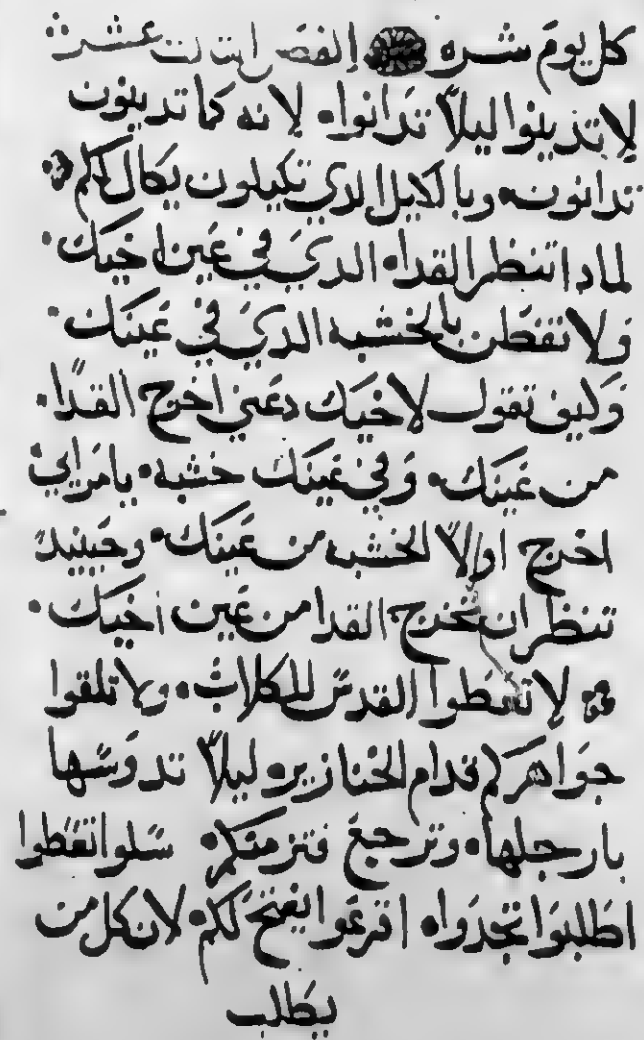 كل يوم شره ۞ الفصل الثالث عشر
لا تدينوا ليلاّ تدانوا۰ لانه كما تدينون
تدانون۰ وبالكيل الدي تكيلون يكال لكم ۞
لمادا تنظر القدا۰ الدي في عين اخيك۰
ولا تفطن بالخشبه الدي في عينك۰
وكيف تقول لاخيك دعني اخرج القدا۰
من عينك۰ وفي عينك خشبه۰ يا مرايي
اخرج اولاّ الخشبه من عينك۰ وحينيد
تنظر ان تخرج القدا من عين اخيك۰
۞ لا تعطوا القدس للكلاب۰ ولا تلقوا
جواهركم قدام الخنازير۰ ليلاّ تدوسها
بارجلها۰ وترجع فتزمتكم۰ سلوا تعطوا
اطلبوا تجدوا۰ اقرعوا يفتح لكم۰ لان كل من
يطلب